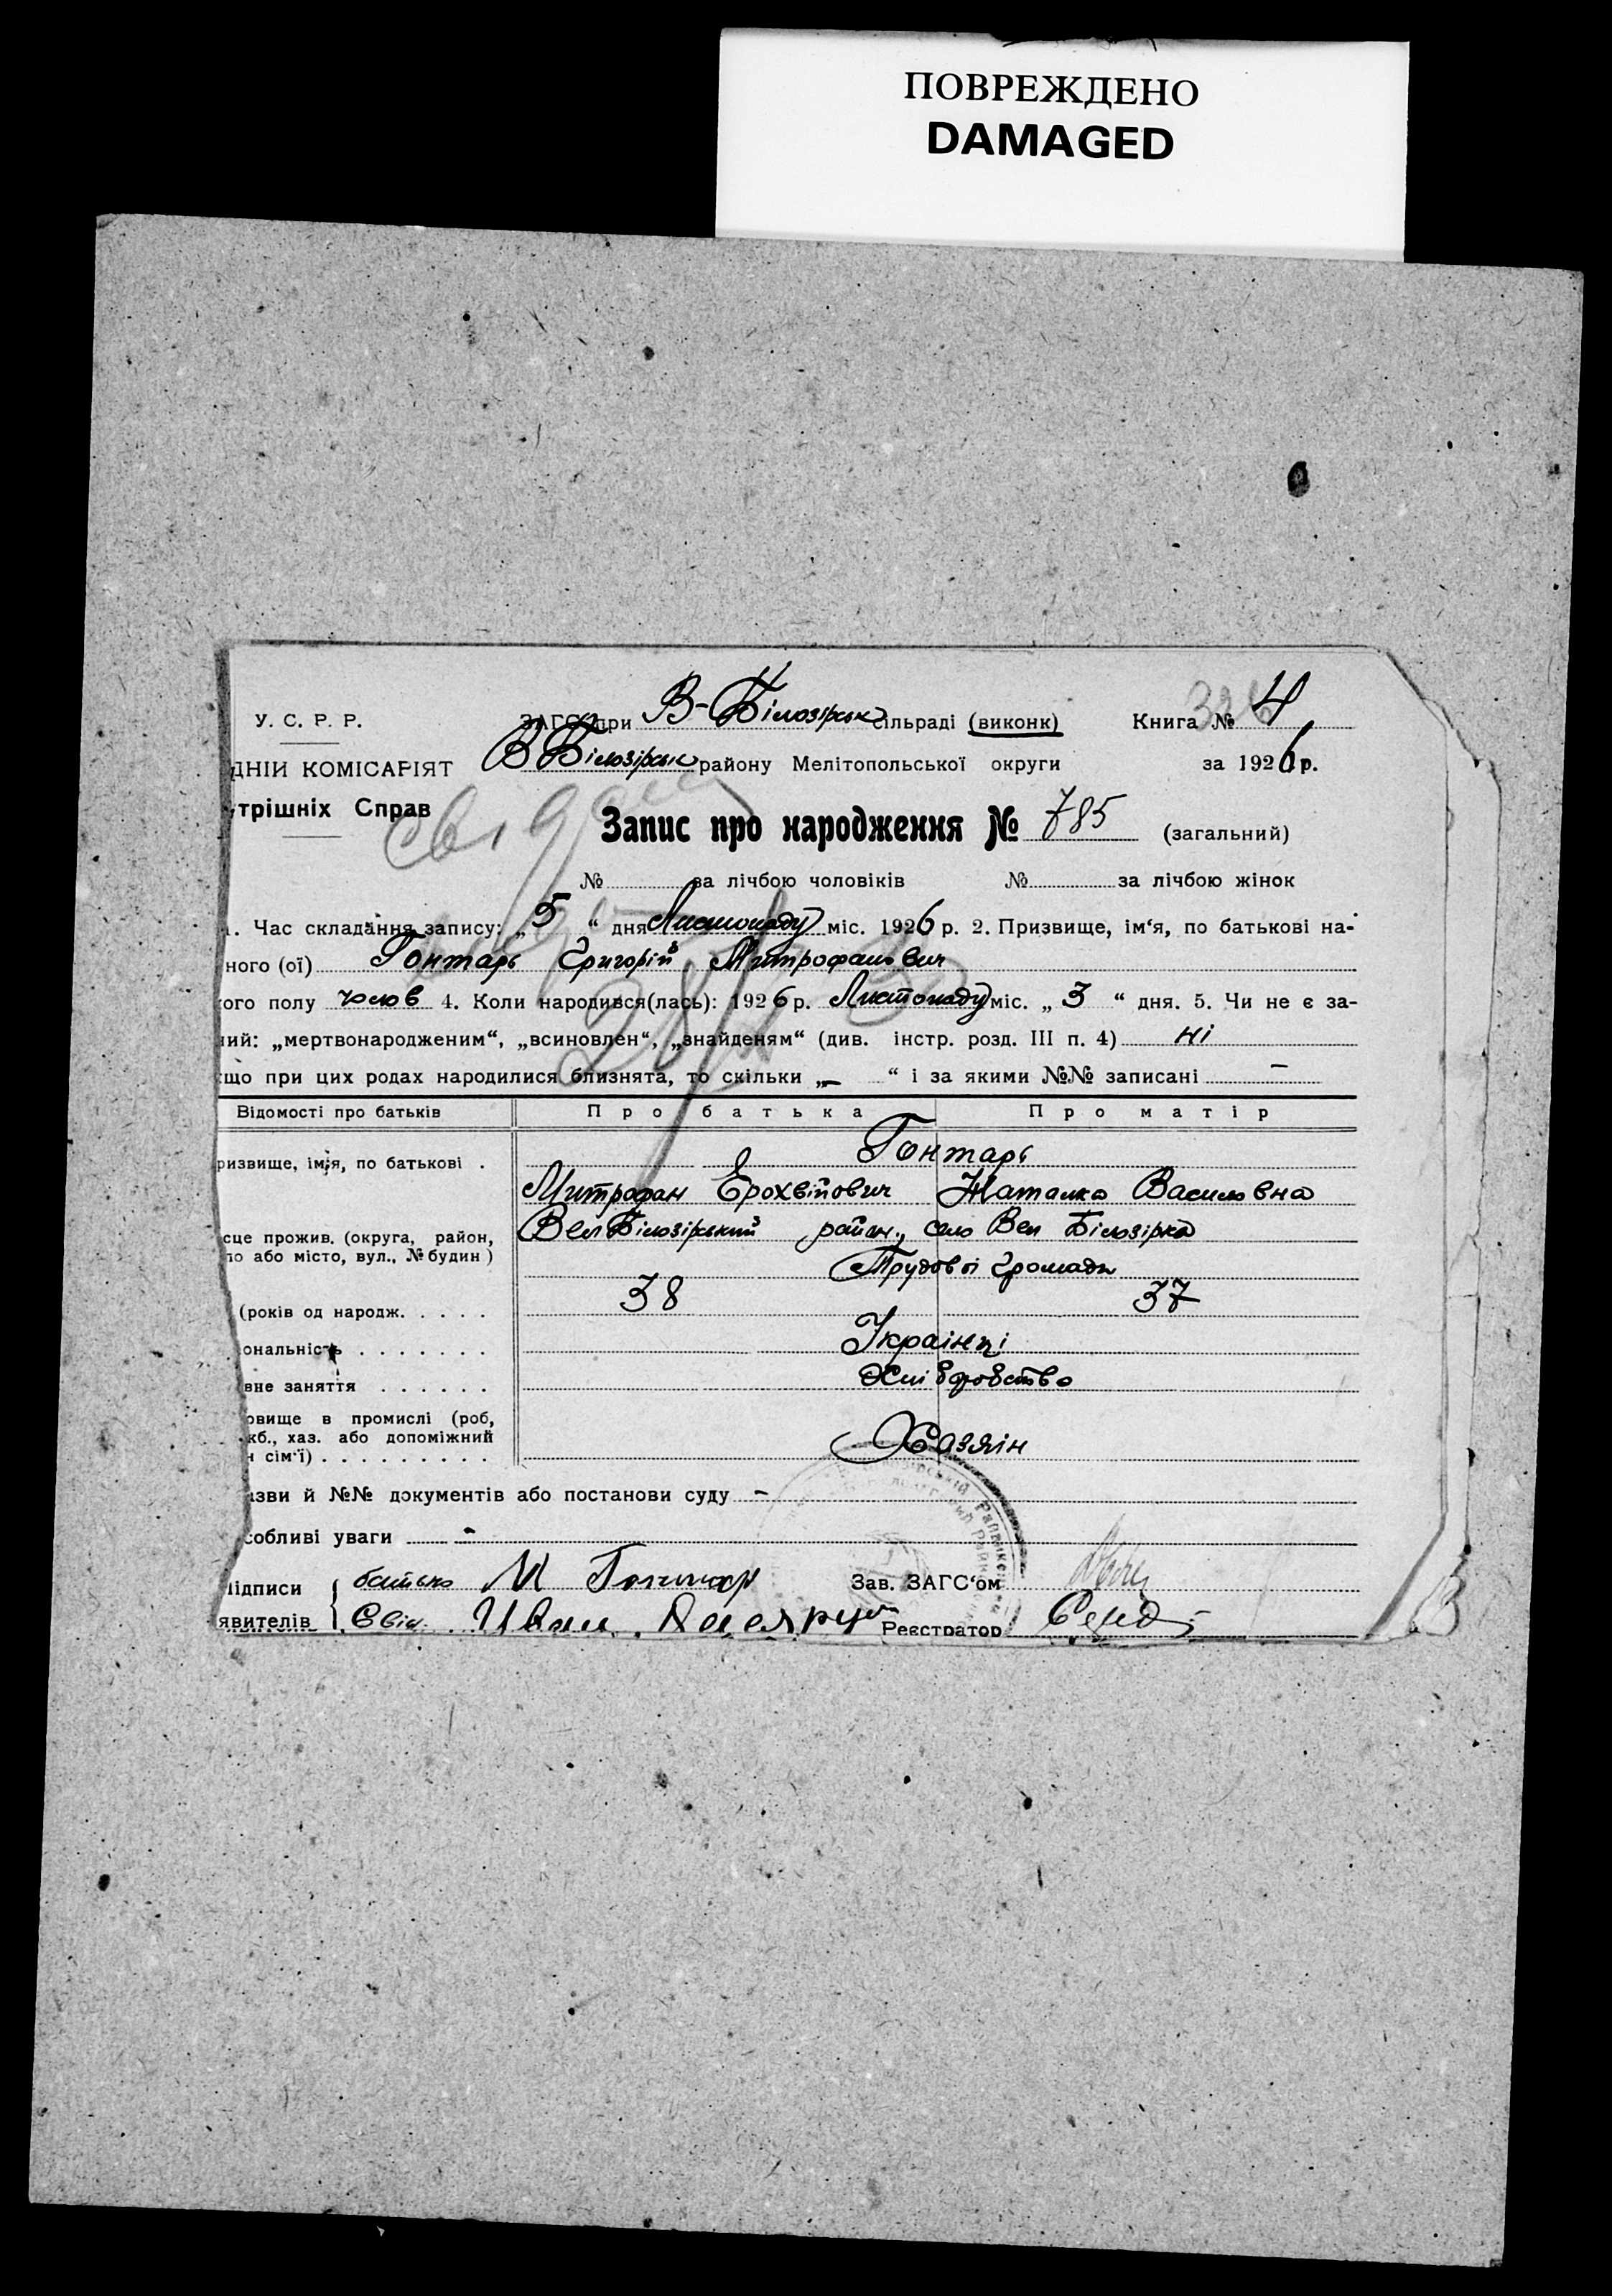 ПОВРЕЖДЕНО
DAMAGED
У. С. Р. Р.
ЗАГС при В-Білозірськ сільраді (виконк)
Книга № 4
ДНІЙ КОМІСАРІЯТ
В Білозірськ району Мелітопольської округи
за 1926 р.
трішніх Справ
Запис про народження № 785 (загальний)
№ за лічбою чоловіків № за лічбою жінок
1. Час складання запису: „5“ дня Листопаду міс. 1926 р. 2. Призвище, ім‘я, по батькові на-
ного (ої) Гонтарь Григорій Митрофанович
ого полу чолов 4. Коли народився(лась): 1926 р. Листопаду міс. „3“ дня. 5. Чи не є за-
ий: „мертвонародженим“, „всиновлен“, „знайденям“ (див. інстр. розд. III п. 4) ні
що при цих родах народилися близнята, то скільки „–“ і за якими №№ записані –
Відомості про батьків
Про батька
Про матір
ризвище, ім‘я, по батькові .
Гонтарь
Митрофан Ерохвійович Наталка Василовна
сце прожив. (округа, район,
ло або місто, вул., № будин)
Вел Білозірський район, село Вел Білозірка
Трудової громади
(років од народж. . . . .
38 37
ональність . . . . . . .
Українці
вне заняття . . . . . .
Хліборобство
овище в промислі (роб,
кб., хаз. або допоміжний
н сім‘ї) . . . . . . . . .
Хазяін
азви й №№ документів або постанови суду –
собливі уваги –
Підписи
явителів
батько М Гонтар
Свід. Иван
Зав. ЗАГС‘ом
Реєстратор